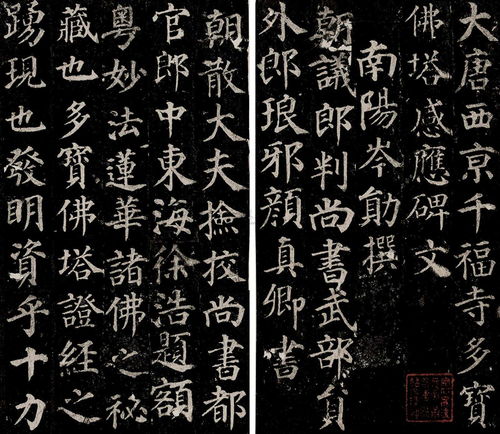 大唐西京千福寺多寶
佛塔感應碑文
南陽岑勛撰
朝議郎判尚書武部員
外郎琅邪顏真卿書
朝散大夫撿挍尚書都
官郎中東海徐浩題額
粵妙法蓮華諸佛之秘
藏也多寶佛塔證經之
踴現也發明資乎十力